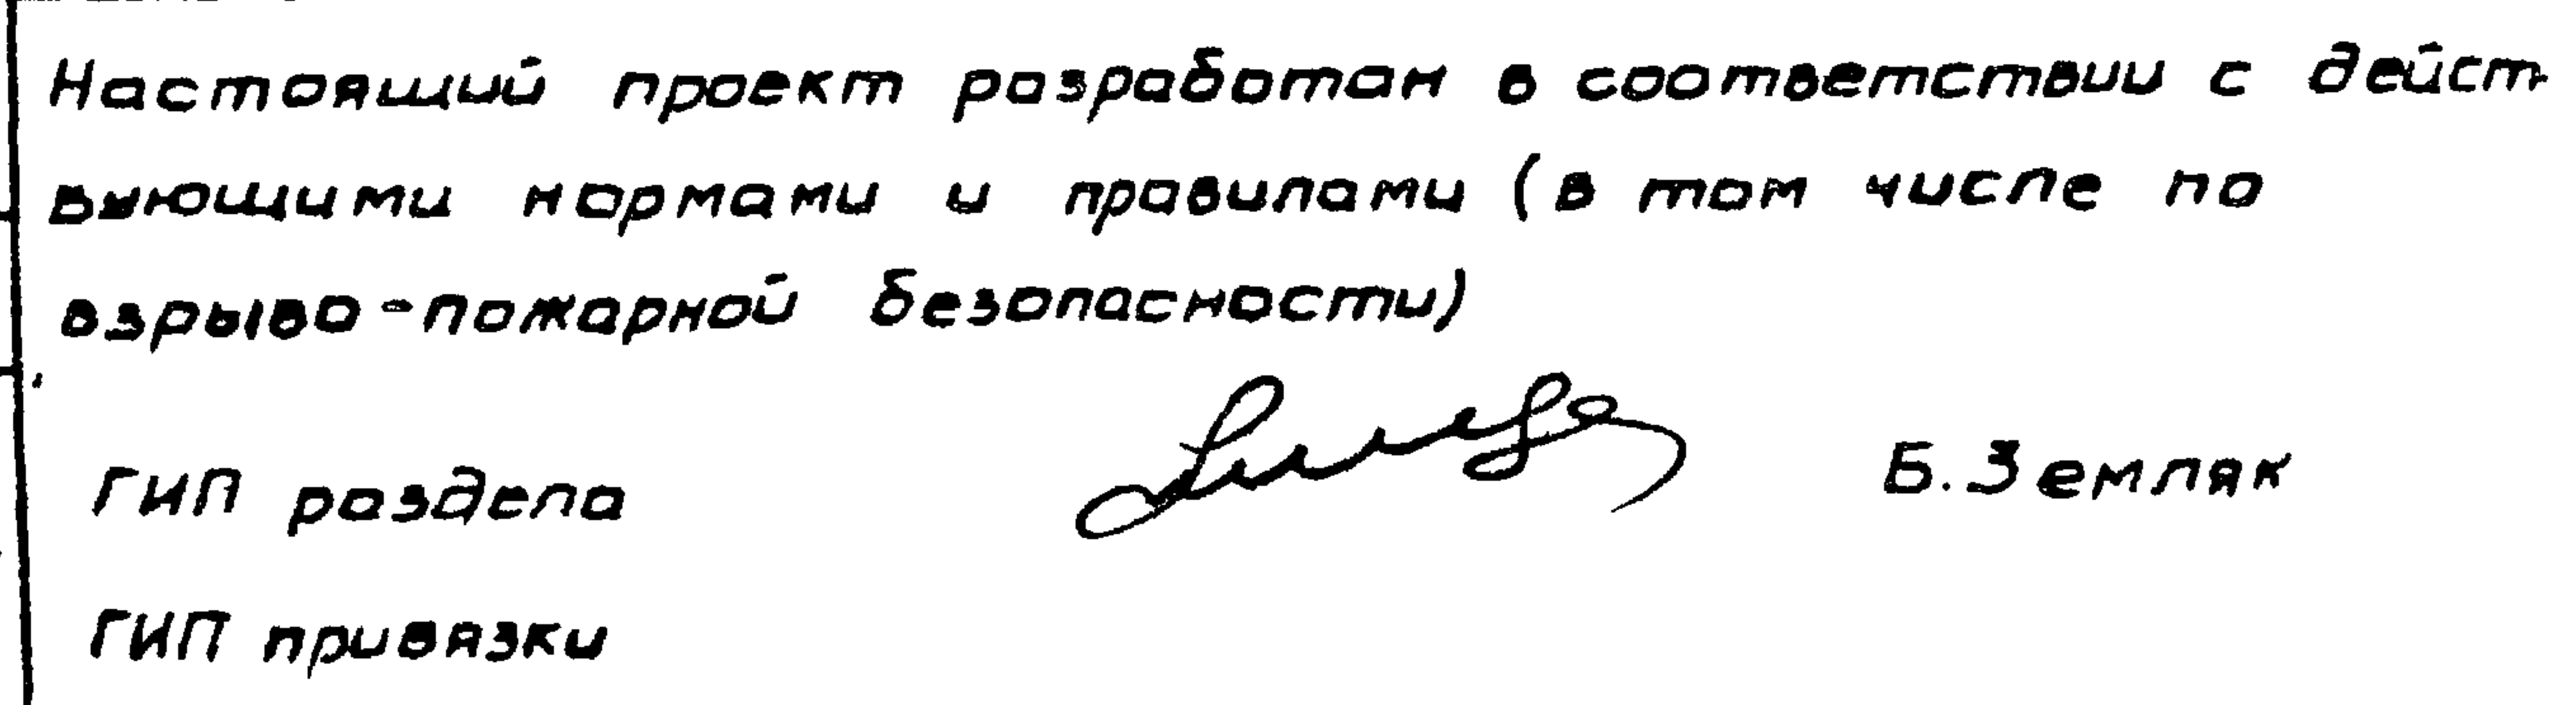 Настоящий проект разработан в соответствии с дейст-
вующими нормами и правилами (в том числе по
взрыво-пожарной безопасности)
ГИП раздела Б. Земляк
ГИП привязки